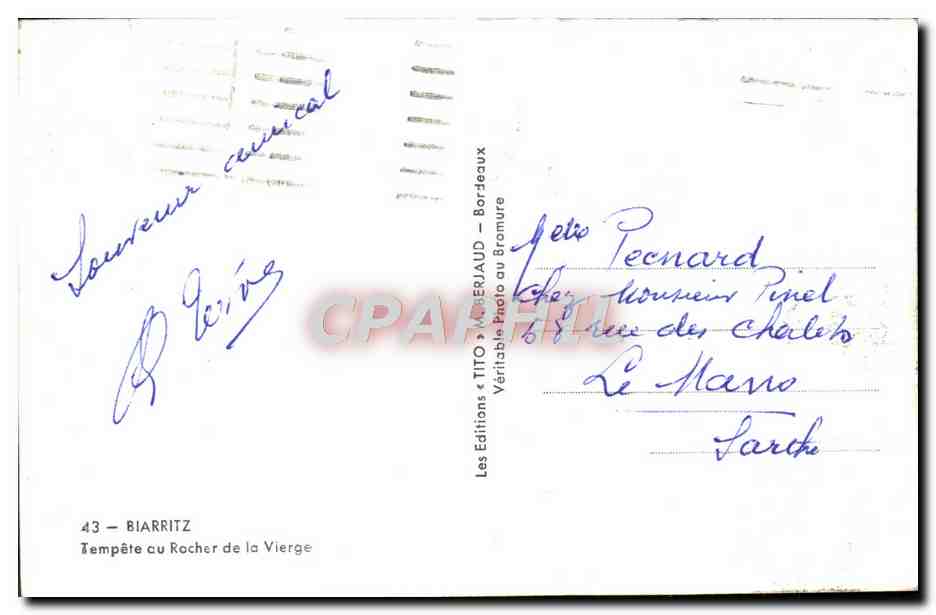 Souvenir amical
Les Editions « TITO » M. BERJAUD — Bordeaux
Véritable Photo au Bromure
Pecnard
Chez Monsieur Pinel
58 rue des Chalets
Le Mans
Sarthe
CPAPHIL
43 — BIARRITZ
Tempête au Rocher de la Vierge